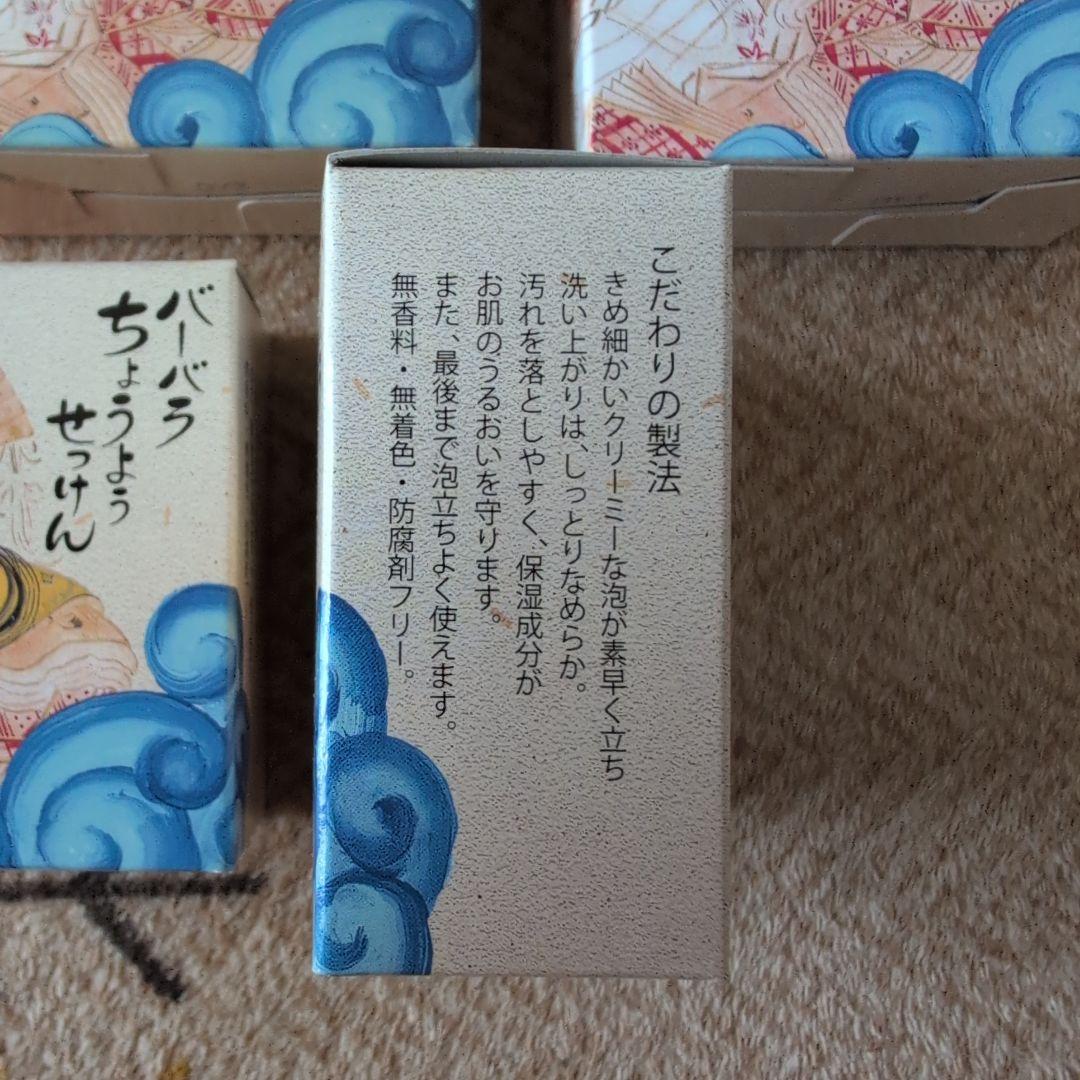 こだわりの製法
きめ細かいクリーミーな泡が素早く立ち
洗い上がりは、しっとりなめらか。
汚れを落としやすく、保湿成分が
お肌のうるおいを守ります。
また、最後まで泡立ちよく使えます。
無香料・無着色・防腐剤フリー。
バーバラ
ちょうよう
せっけん